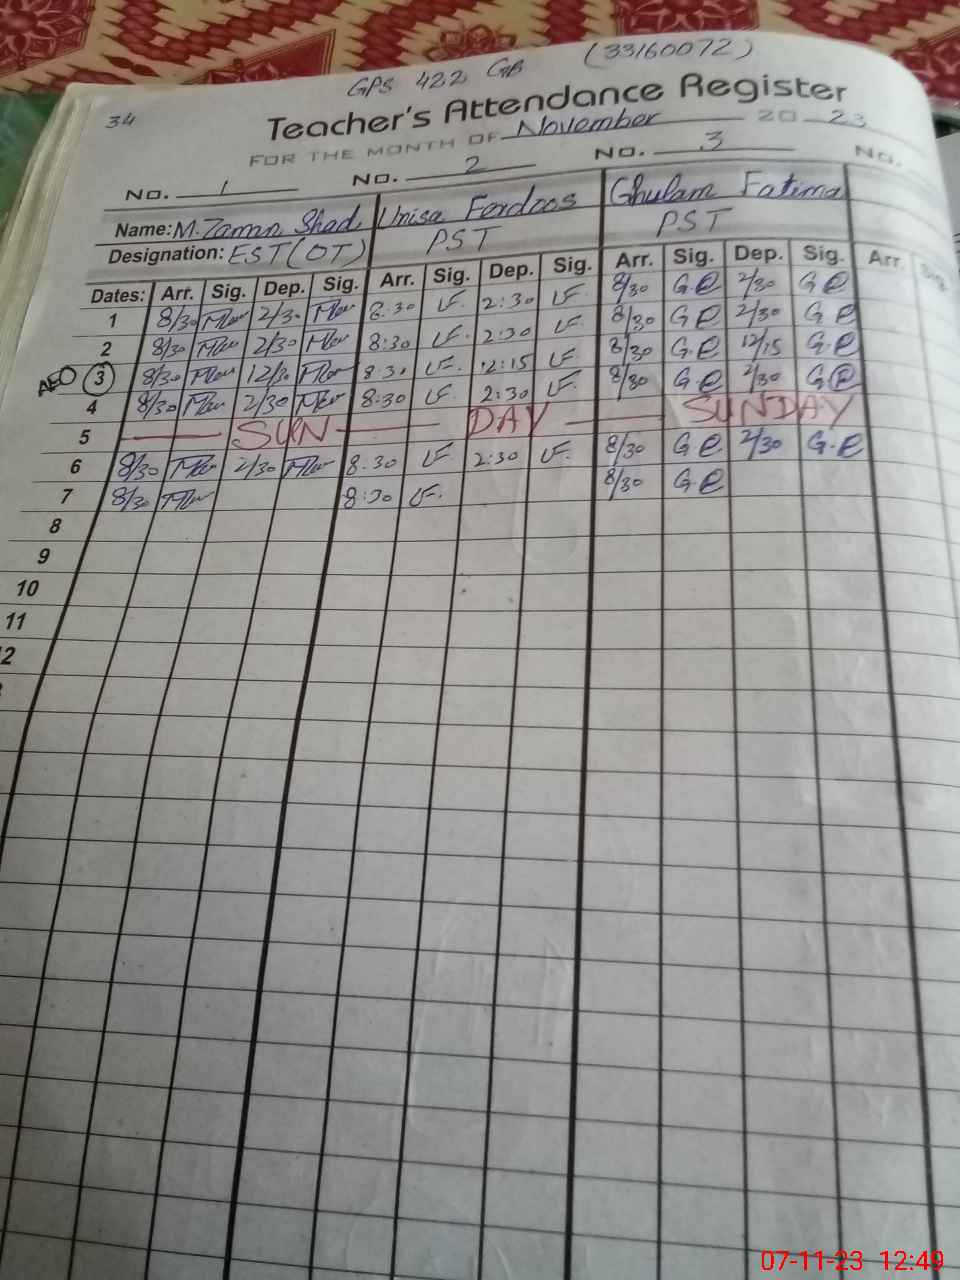 GPS 422 GB (33160072)
34
Teacher's Attendance Register
FOR THE MONTH OF November 2023
No. 1 No. 2 No. 3 No.
Name: M. Zaman Shad Unisa Ferdoos Ghulam Fatima
Designation: EST (OT) PST PST
Dates: Arr. Sig. Dep. Sig. Arr. Sig. Dep. Sig. Arr. Sig. Dep. Sig. Arr. Sig.
1 8/30 2/30 8:30 UF 2:30 UF 8/30 G.F 2/30 G F
2 8/30 2/30 8:30 UF 2:30 UF 8/30 G F 2/30 G F
AEO 3 8/30 12/30 8:30 UF 12:15 UF 8/30 G.F 12/15 G.F
4 8/30 2/30 8:30 UF 2:30 UF 8/30 G.F 2/30 G F
5 SUN DAY SUNDAY
6 8/30 2/30 8:30 UF 2:30 UF 8/30 G F 2/30 G.F
7 8/30 8:30 UF 8/30 G F
8
9
10
11
2
07-11-23 12:49